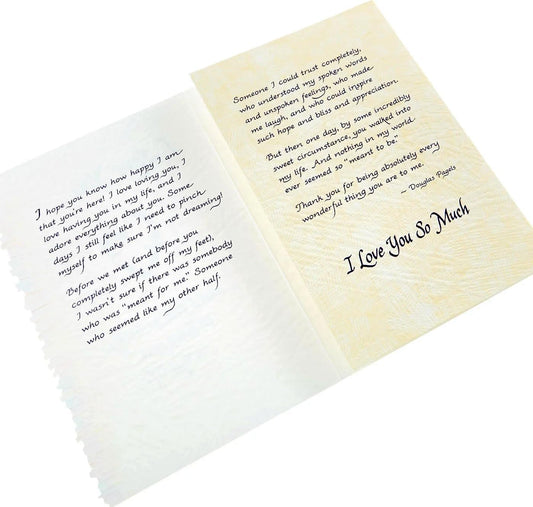 I hope you know how happy I am
that you're here! I love loving you, I
love having you in my life, and I
adore everything about you. Some
days I still feel like I need to pinch
myself to make sure I'm not dreaming!
Before we met (and before you
completely swept me off my feet),
I wasn't sure if there was somebody
who was "meant for me." Someone
who seemed like my other half.
Someone I could trust completely,
who understood my spoken words
and unspoken feelings, who made
me laugh, and who could inspire
such hope and bliss and appreciation.
But then one day, by some incredibly
sweet circumstance, you walked into
my life. And nothing in my world
ever seemed so "meant to be."
Thank you for being absolutely every
wonderful thing you are to me.
~ Douglas Pagels
I Love You So Much